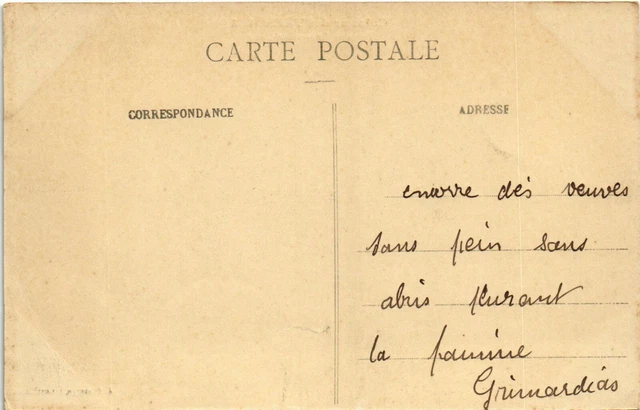 CARTE POSTALE
CORRESPONDANCE
ADRESSE
encorre dés veuves
sans pein sans
abris plurant
la famine
Grimardias